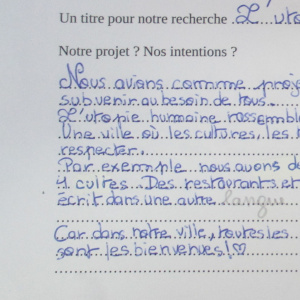 Un titre pour notre recherche L'uto
Notre projet ? Nos intentions ?
Nous avions commme proje
subvenir au besoin de tous.
L'utopie humaine rassemble
Une ville où les cultures, les
respecter.
Par exemple nous avons de
4 cultes. Des restaurants et
écrit dans une autre langue
Car dans notre ville, toutes les
sont les bienvenues!♡